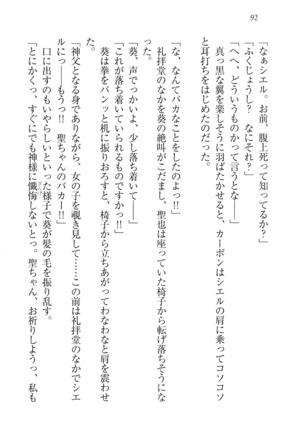 92
「なぁシエル。お前、腹上死って知ってるか？」
「ふくじょうし？　なにそれ？」
「へへ、どういうものかって言うとな――」
真っ黒な翼を楽しそうに羽ばたかせると、カーボンはシエルの肩に乗ってコソコソ
と耳打ちをはじめたのだった。
「な、なんてバカなことをしたのよォ!!」
礼拝堂のなかを葵の絶叫がこだまし、聖也は座っていた椅子から転げ落ちそうにな
った。
「葵、声でっかいよ、少し落ち着いて――」
「これが落ち着いていられるものですかっ!!」
葵は拳をバンッと机に振りおろすと、椅子から立ちあがってわなわなと肩を震わせ
「神父となる身でありながら、女の子を覗き見して……この前は礼拝堂のなかでシエ
ルに――もうっ!!　聖ちゃんのバカー!!」
口に出すのもいやらしいといった様子で葵が髪の毛を振り乱す。
「とにかくっ、すぐにでも神様に懺悔しないとっ。聖ちゃん、お祈りしようっ、私も